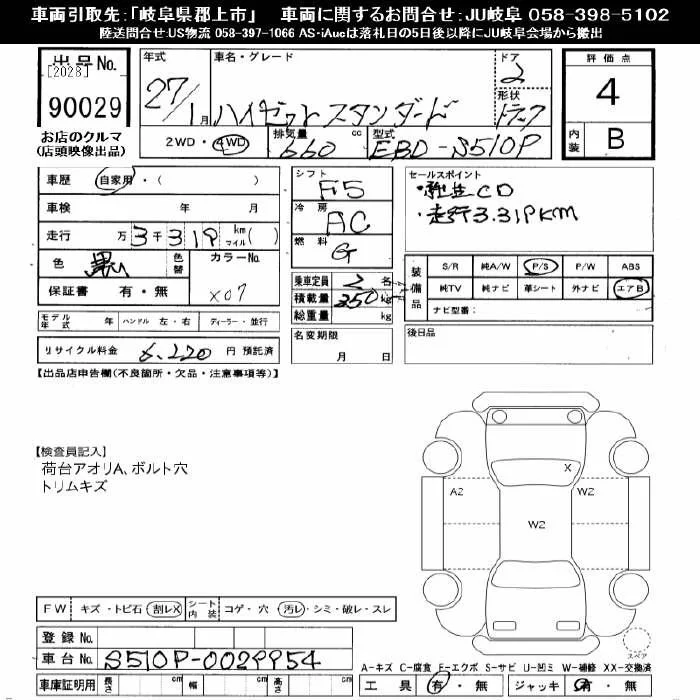 車両引取先:「岐阜県郡上市」 車両に関するお問合せ:JU岐阜 058-398-5102
陸送問合せ:US物流 058-397-1066 AS・iAucは落札日の5日後以降にJU岐阜会場から搬出
出品No.
[2028]
90029
お店のクルマ
(店頭映像出品)
年式 車名・グレード ドア
27/1月 ハイゼットトラック スタンダード 2
形状 トラック
2WD・4WD 排気量 660 cc 型式 EBD-S510P
評価点
4
内装 B
車歴 自家用・( )
車検 年 月
走行 万 3千3 19 km マイル( )
色 黒 色替 カラーNo.
保証書 有・無 X07
モデル年式 年 ハンドル 左・右 ディーラー・並行
リサイクル料金 6,220 円 預託済
シフト F5
冷房 AC
燃料 G
乗車定員 2 名
積載量 350 kg
総重量 kg
名変期限
月 日
セールスポイント
・純正CD
・走行3.319KM
装備品 S/R 純A/W P/S P/W ABS
純TV 純ナビ 革シート 外ナビ エアB
ナビ型番:
後日品
【出品店申告欄(不良箇所・欠品・注意事項等)】
【検査員記入】
荷台アオリA、ボルト穴
トリムキズ
X
A2 W2
W2
スペア
FW キズ・トビ石・割レX シート内装 コゲ・穴・汚レ・シミ・破レ・スレ
登録No.
車台No. S510P-0029954
車庫証明用 長さ cm 幅 cm 高さ cm
A-キズ C-腐食 E-エクボ S-サビ U-凹ミ W-補修 XX-交換済
工具 有・無 ジャッキ 有・無